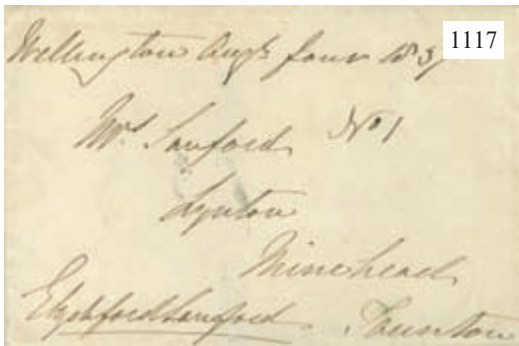 Wellington Augt four 1837
1117
Mrs Sanford No 1
Lynton
Minehead
Sanford Taunton